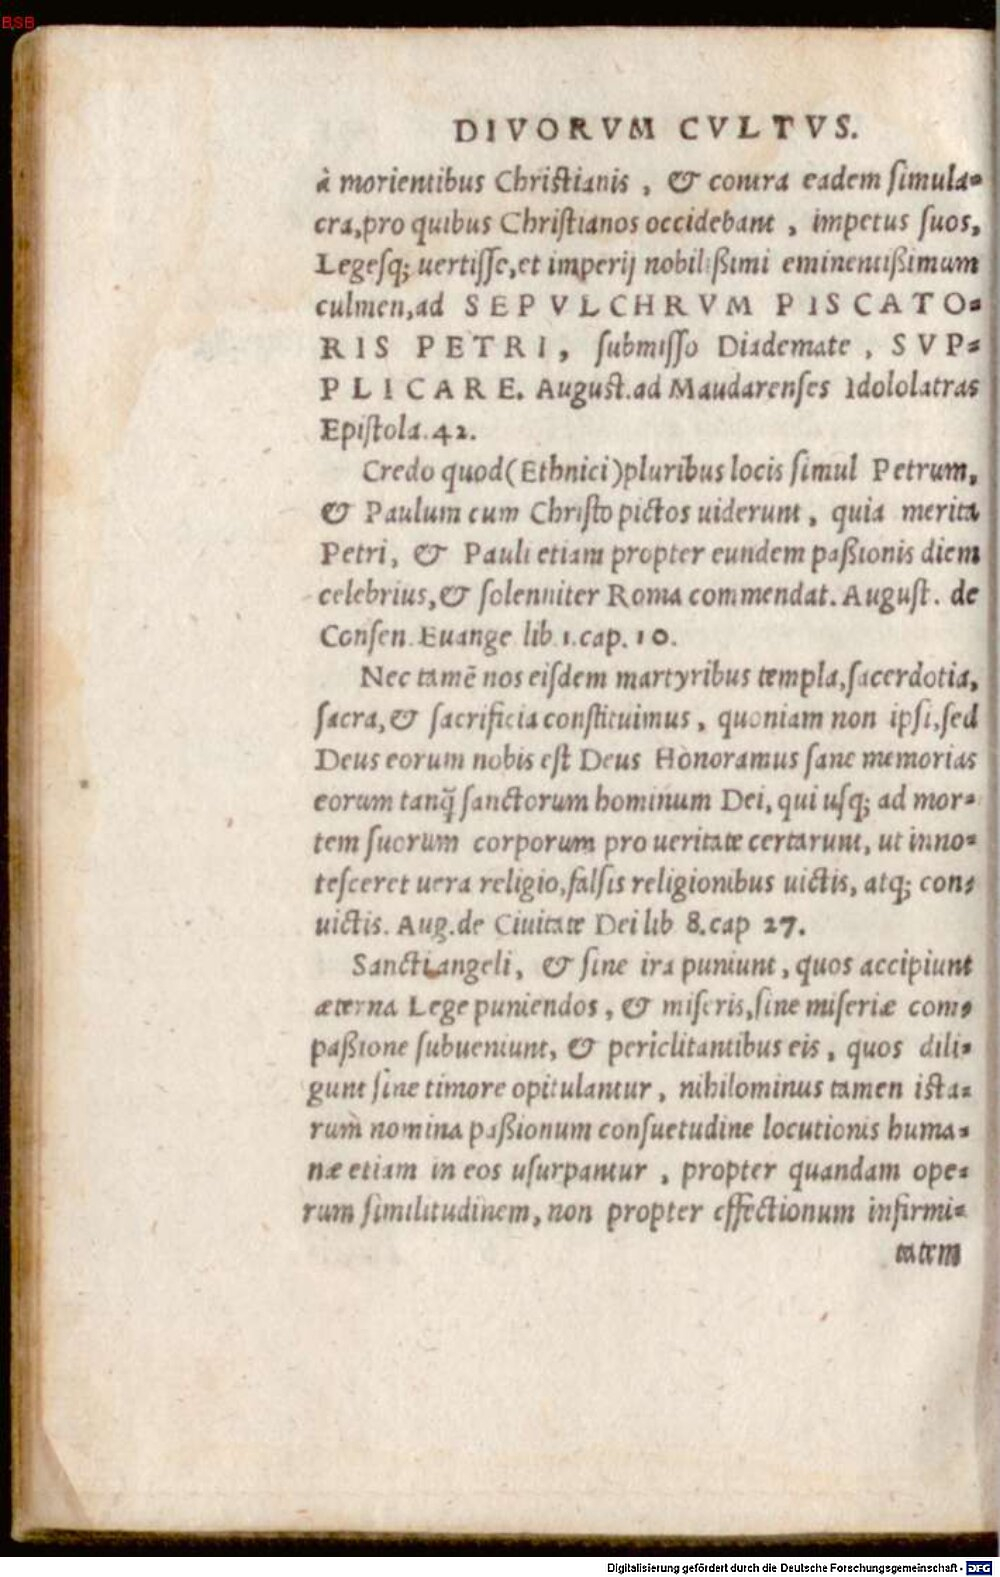 BSB
DIVORVM CVLTVS.
à morientibus Christianis, & contra eadem simula-
cra, pro quibus Christianos occidebant, impetus suos,
Legesq; uertisse, et imperij nobilißimi eminentißimum
culmen, ad SEPVLCHRVM PISCATO-
RIS PETRI, submisso Diademate, SVP-
PLICARE. August. ad Maudarenses Idololatras
Epistola. 42.
Credo quod (Ethnici) pluribus locis simul Petrum,
& Paulum cum Christo pictos uiderunt, quia merita
Petri, & Pauli etiam propter eundem paßionis diem
celebrius, & solenniter Roma commendat. August. de
Consen. Euange lib. 1. cap. 10.
Nec tamē nos eisdem martyribus templa, sacerdotia,
sacra, & sacrificia constituimus, quoniam non ipsi, sed
Deus eorum nobis est Deus Honoramus sane memorias
eorum tanq̃ sanctorum hominum Dei, qui usq; ad mor-
tem suorum corporum pro ueritate certarunt, ut inno-
tesceret uera religio, falsis religionibus uictis, atq; con-
uictis. Aug. de Ciuitate Dei lib 8. cap 27.
Sancti angeli, & sine ira puniunt, quos accipiunt
æterna Lege puniendos, & miseris, sine miseriæ com-
paßione subueniunt, & periclitantibus eis, quos dili-
gunt sine timore opitulantur, nihilominus tamen ista-
rum nomina paßionum consuetudine locutionis huma-
næ etiam in eos usurpantur, propter quandam ope-
rum similitudinem, non propter effectionum infirmi-
tatem
Digitalisierung gefördert durch die Deutsche Forschungsgemeinschaft - DFG